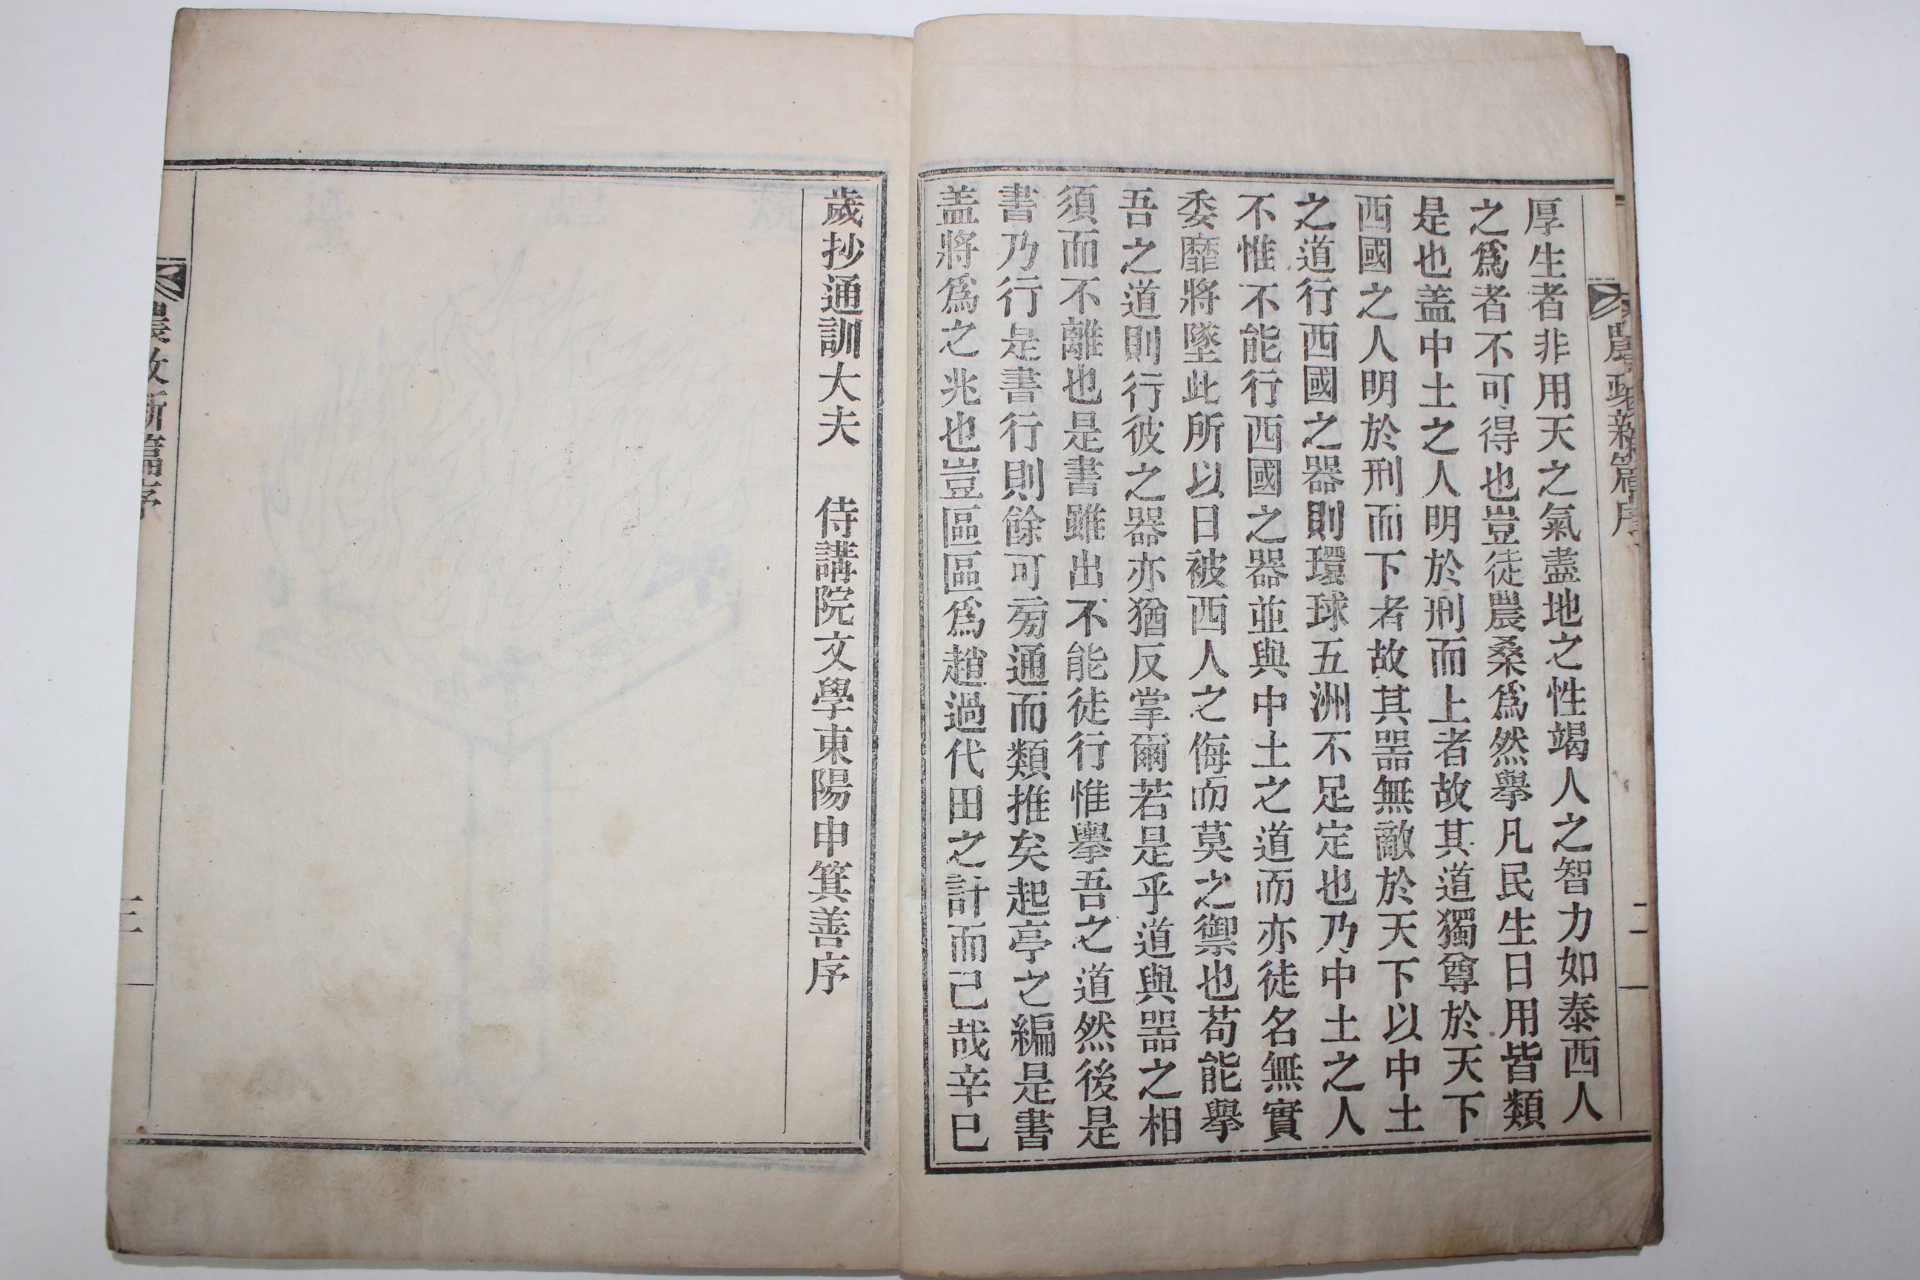 厚生者非用天之氣盡地之性竭人之智力如泰西人
之爲者不可得也豈徒農桑爲然擧凡民生日用皆類
是也盖中土之人明於刑而上者故其道獨尊於天下
西國之人明於刑而下者故其器無敵於天下以中土
之道行西國之器則環球五洲不足定也乃中土之人
不惟不能行西國之器並與中土之道而亦徒名無實
委靡將墜此所以日被西人之侮而莫之禦也苟能擧
吾之道則行彼之器亦猶反掌爾若是乎道與器之相
須而不離也是書雖出不能徒行惟擧吾之道然後是
書乃行是書行則餘可旁通而類推矣起亭之編是書
盖將爲之兆也豈區區爲趙過代田之計而已哉辛巳
農政新篇序
二
歲抄通訓大夫 侍講院文學東陽申箕善序
農政新篇序
三